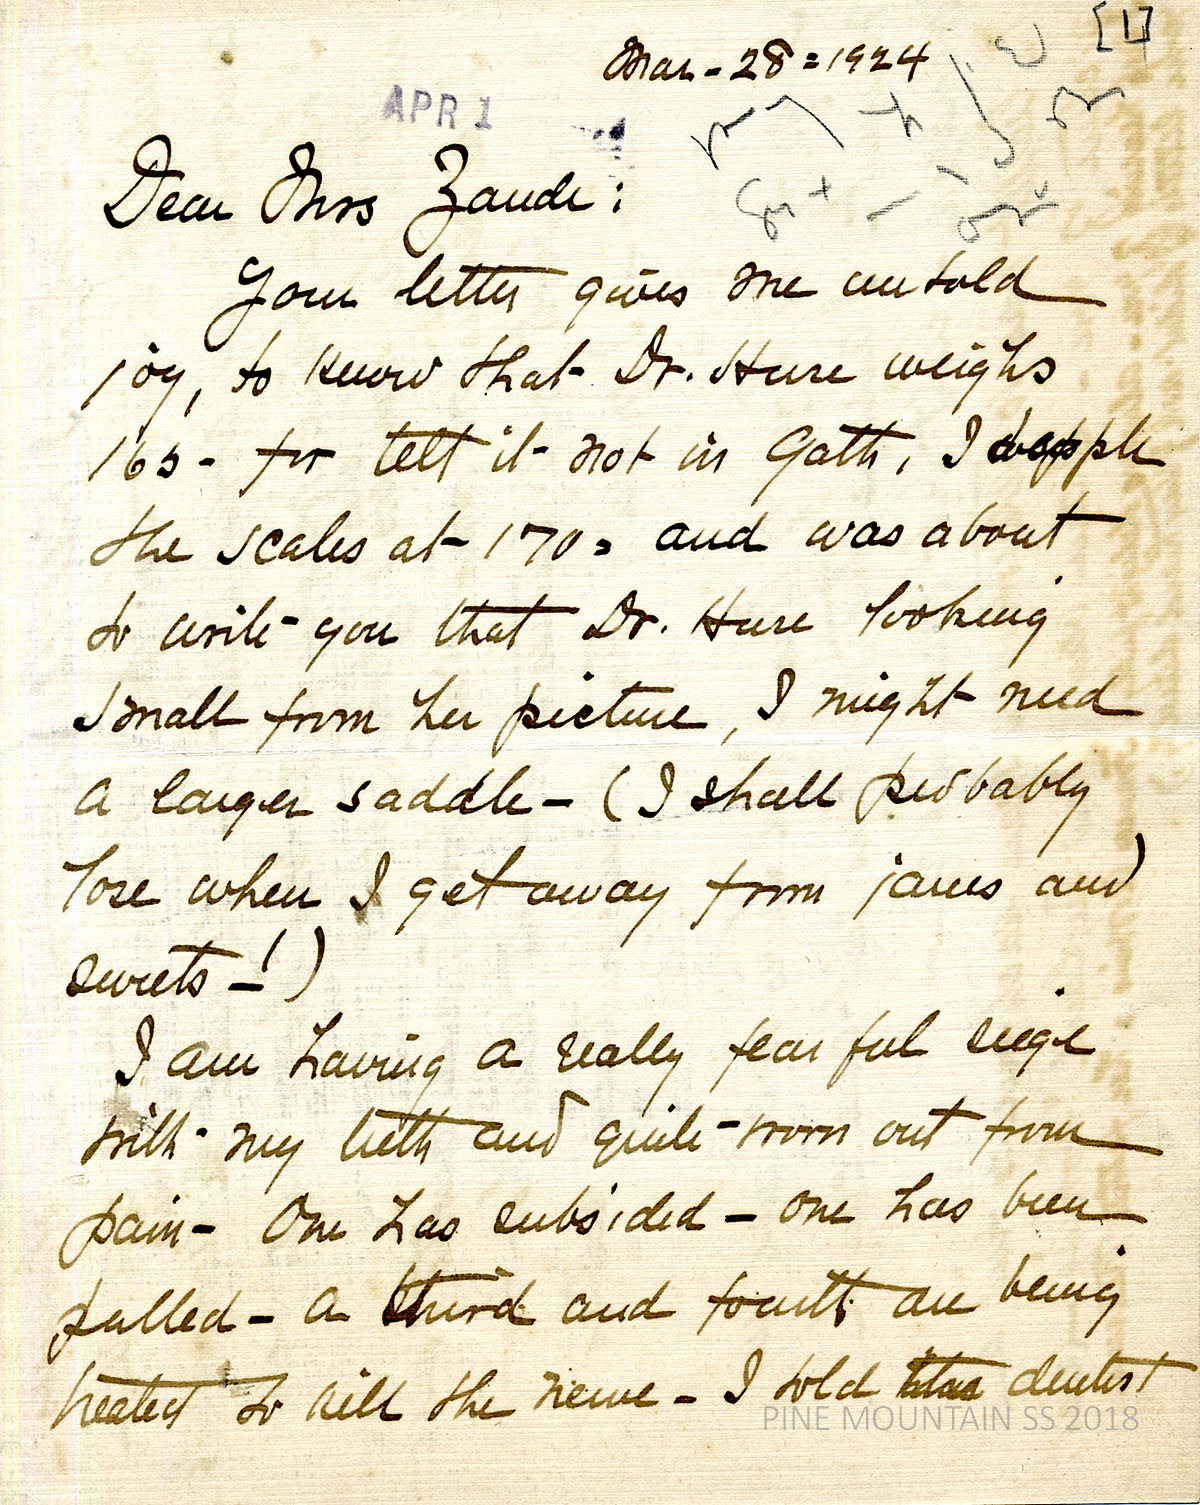 [1]
Mar - 28 = 1924
APR 1
Dear Mrs Zande:
Your letter gives me untold
joy, to know that Dr. Huse weighs
165 - for tell it not in Gath, I topple
the scales at 170 = and was about
to write you that Dr. Huse looking
small from her picture, I might need
a larger saddle - (I shall probably
lose when I get away from james and
sweets - !)
I am having a really fearful siege
with my teeth and quite worn out from
pain - One has subsided - one has been
pulled - a third and fourth are being
treated to kill the nerve - I told dentist
PINE MOUNTAIN SS 2018